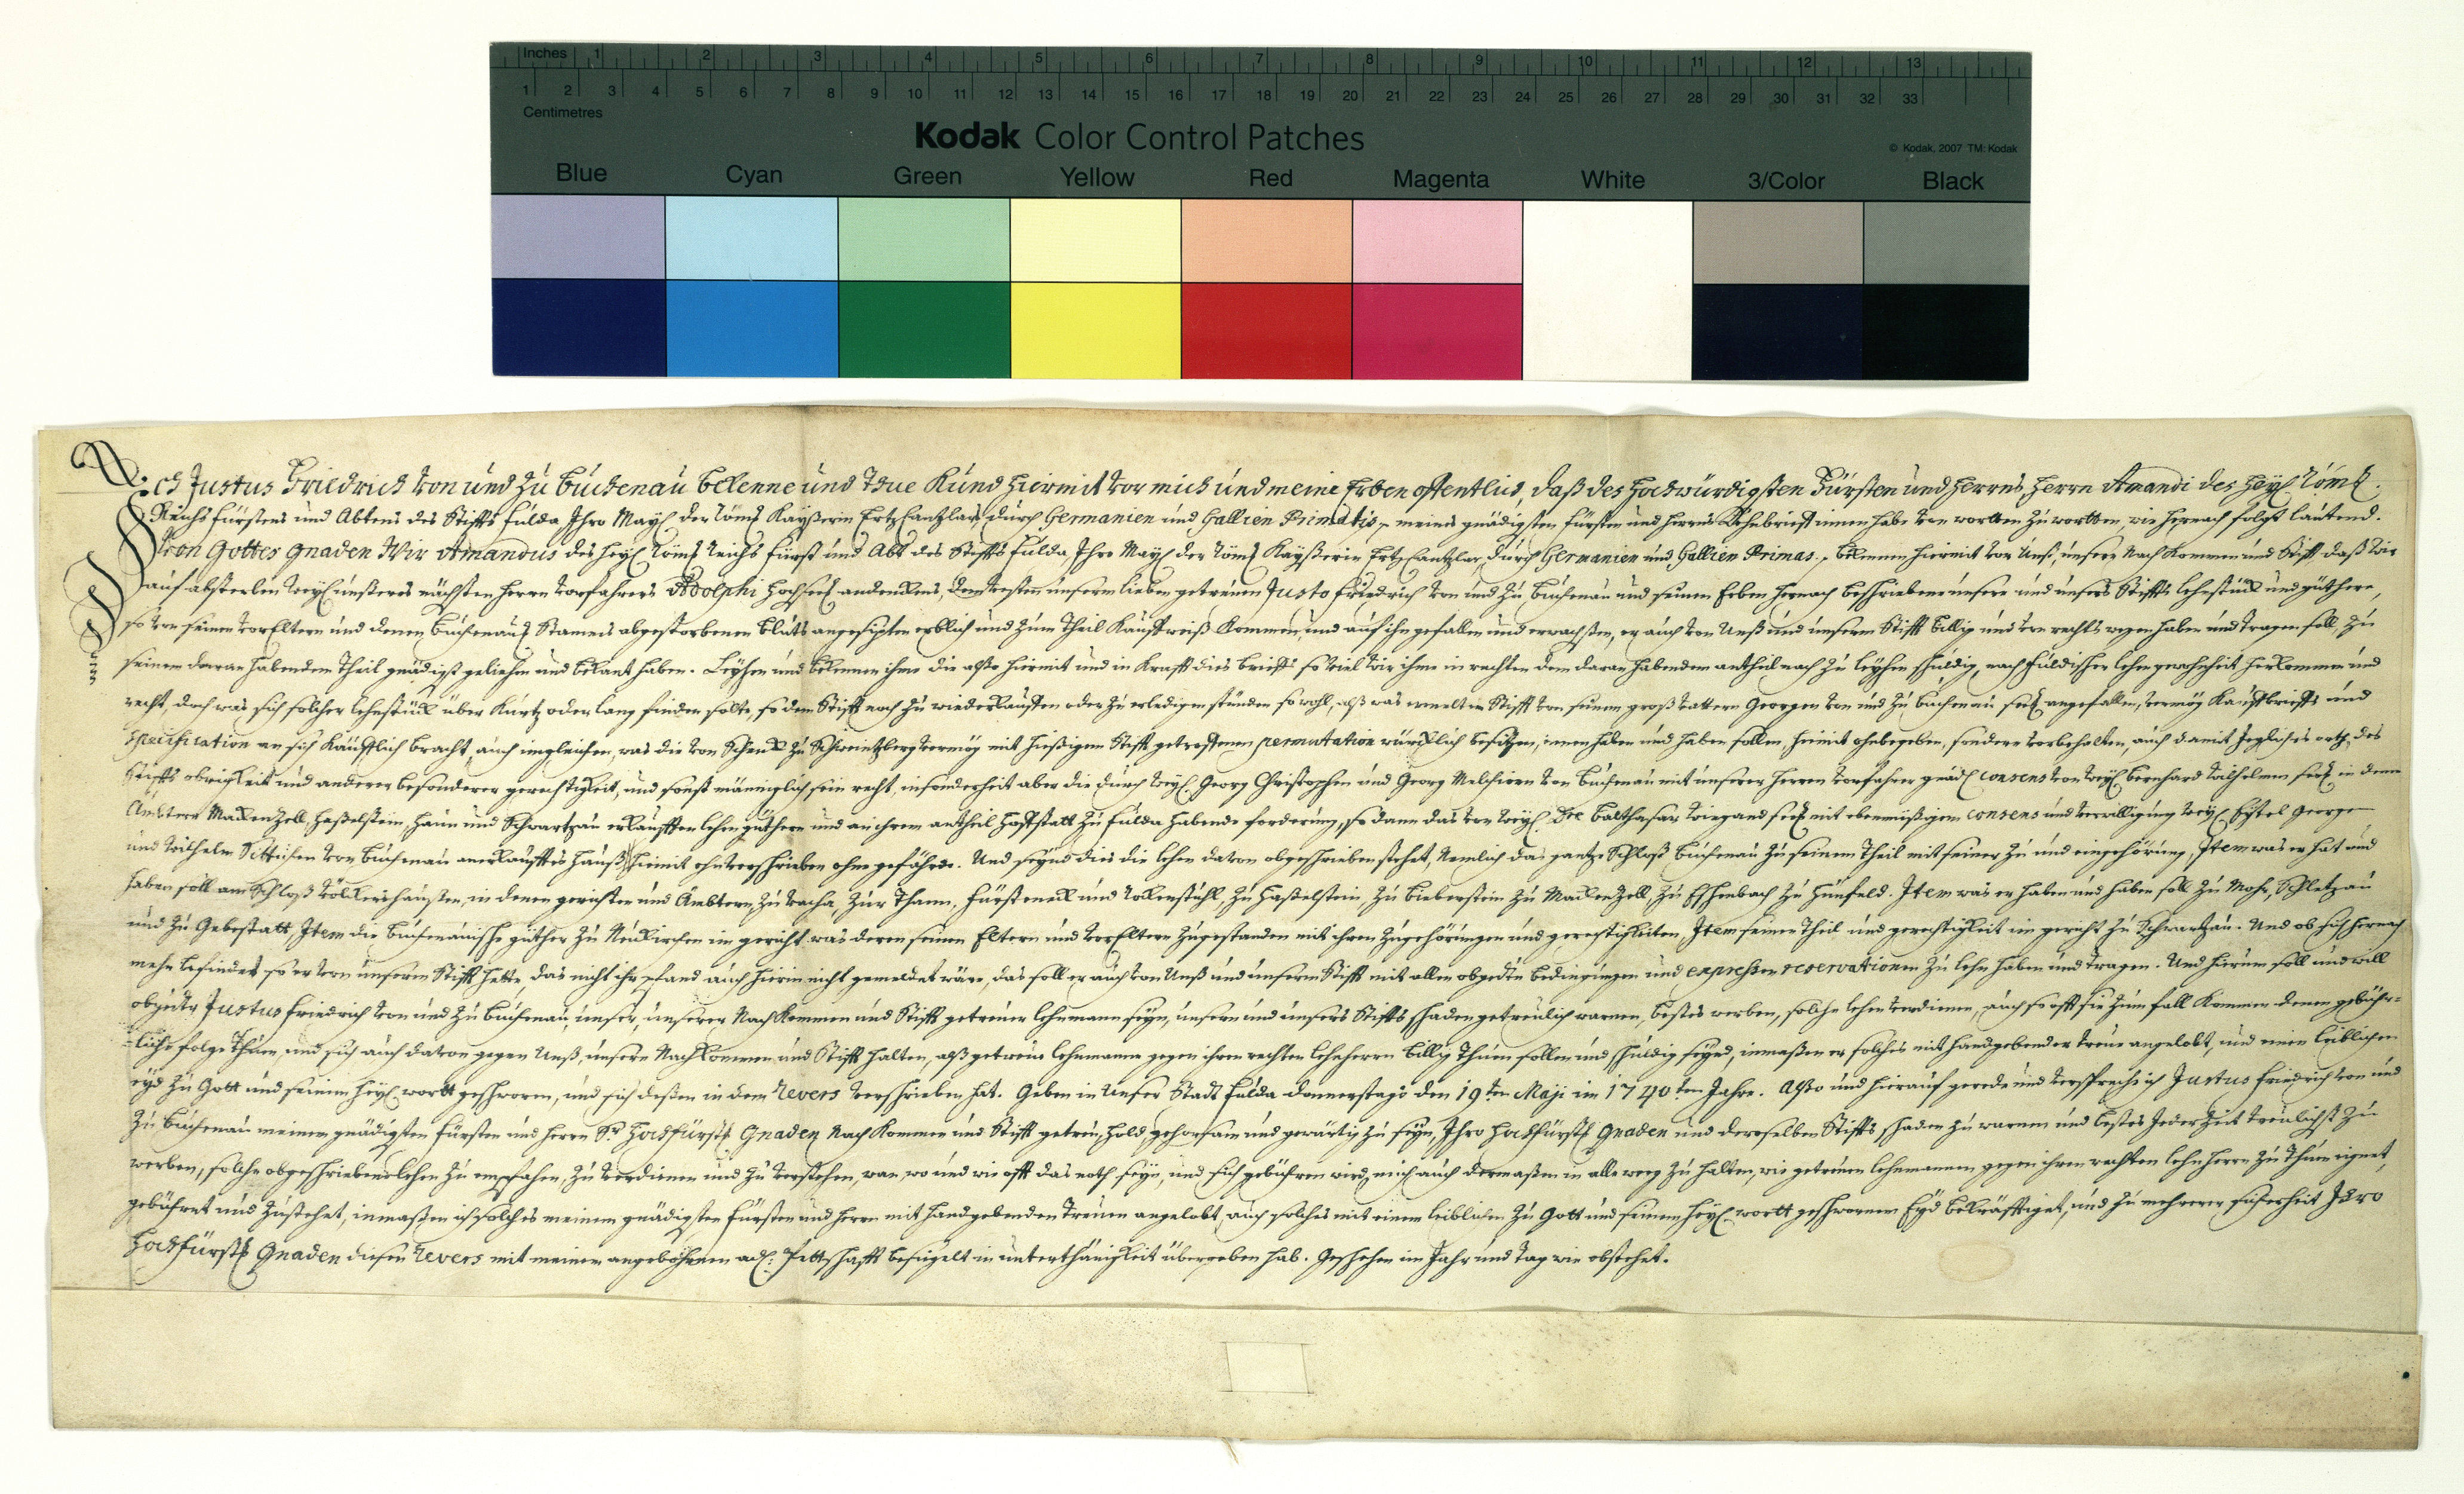 Inches 1 2 3 4 5 6 7 8 9 10 11 12 13
1 2 3 4 5 6 7 8 9 10 11 12 13 14 15 16 17 18 19 20 21 22 23 24 25 26 27 28 29 30 31 32 33
Centimetres
Kodak Color Control Patches
© Kodak, 2007 TM: Kodak
Blue Cyan Green Yellow Red Magenta White 3/Color Black
Ich Justus Friedrich von und zu Buchenau bekenne und thue Kund hiermit vor mich und meine Erben offentlich, daß des hochwürdigsten Fürsten und Herrns, Herrn Amandi des Heyl. Röml.
Reichs Fürstens und Abtens des Stiffts Fulda, Ihro May. der Röml. Kayßerin Ertz Cantzlars, durch Germanien und Gallien Primatis, meines gnädigsten Fürsten und Herrns Lehnbrieff innen habe von wortten zu wortten, wie hernach folgt lautend.
Von Gottes Gnaden Wir Amandus des Heyl. Röml. Reichs Fürst und Abt des Stiffts Fulda, Ihro May. der Röml. Kayßerin Ertz Cantzlar, durch Germanien und Gallien Primas, bekennen hiermit vor Unß, unsere Nachkommen und Stifft, daß Wir
auf absterben weyl. unßeres nächsten Herrn Vorfahrers Adolphi hochseel. andenckens, dem Vesten unserem lieben getreuen Justo Friedrich von und zu Buchenau und seinen Erben hernach beschriebene unsere und unsers Stiffts lehnstück und güthere,
so von seinen VorEltern und denen Buchenaul. Stames abgestorbenen bluts angesipten erblich und zum Theil Kauffweiß kommen, und auf ihn gefallen und erwachsen, er auch von Unß und unserem Stifft billig und von rechts wegen haben und tragen soll, zu
seinem daran habenden Theil gnädigst geliehen und bekant haben. Leyhen und bekennen ihme die alßo hiermit und in Krafft dies brieffs so viel wir ihme in rechten dem daran habenden antheil nach zu leyhen schuldig, nach Fuldischer lehn gewohnheit herkommen und
recht, doch was sich solcher lehnstück über Kurtz oder lang finden solte, so dem Stifft noch zu wiederkauffen oder zu erledigen stünden so wohl, alß was ermelten Stifft von seinem großvattern Georgen von und zu Buchenau seel. angefallen, vermög Kauffbrieffs und
specification an sich Käufflich bracht, auch imgleichen, was die von Schenck zu Schweinsberg vermög mit hießigem Stifft getroffenen permutation würcklich besitzen, innen haben und haben sollen, hiemit ohnbegeben, sondern vorbehalten, auch damit Jegliches orth, des
Stiffts obrigkeit und anderer besonderer gerechtigkeit, und sonst männiglich sein recht, insonderheit aber die durch weyl. Georg Christophen und Georg Melchiorn von Buchenau mit unserer Herren Vorfahrer gnäd. consens von weyl. Bernhard Wilhelmen seel. in denen
Ambtern Mackenzell, Haßelstein, Haun und Schwartzau erkaufften lehn güthern und an ihrem antheil Hoffstatt zu Fulda habende forderung, so dann das von weyl. Dre Balthasar Wiegand seel. mit ebenmäßigem consens und verwilligung weyl. Eytel George
und Wilhelm Sittichen von Buchenau anerkaufftes Hauß hiemit ohnverschrieben ohne gefährde. Und seynd dies die lehen davon obgeschrieben stehet, Nemlich das gantze Schloß Buchenau zu seinem Theil mit seiner zu und eingehörung, Item was er hat und
haben soll am Schloß Völckershaußen, in denen gerichten und Ämbtern, zu Vacha, zur Thann, Fürsteneck und Rockenstuhl, zu Haßelstein, zu Bieberstein zu Mackenzell, zu Eschenbach zu Hünfeld. Item was er haben und haben soll zu Mohr, Schletzau
und zu Gebestatt, Item die Buchenauische güther zu Neukirchen im gericht was deren seinen Eltern und VorEltern zugestanden mit ihren zugehörungen und gerechtigkeiten, Item seinen Theil und gerechtigkeit im gericht zu Schwartzau. Und ob sich hernach
mehr befindet so er von unserem Stifft hette, das nicht ihr pfand auch hierin nicht gemeldet wäre, das soll er auch von Unß und unserem Stifft mit allen obgedten bedingungen und expressen reservationen zu lehn haben und tragen. Und hierum soll und will
obgnter Justus Friedrich von und zu Buchenau, unser, unserer Nachkommen und Stifft getreuer lehnmann seyn, unsern und unsers Stiffts schaden getreulich warnen, bestes werben, solche lehen verdienen, auch so offt sie zum fall kommen denen gebühr-
liche folge thun, und sich auch davon gegen Unß, unsere Nachkommen und Stifft halten, alß getreue lehnmanne gegen ihren rechten lehnherrn billig thuen sollen und schuldig seynd, inmaßen er solches mit handgebender treue angelobt, und einen leiblichen
eyd zu Gott und seinem heyl. wortt geschworen, und sich deßen in dem Revers verschrieben hat. Geben in Unser Stadt Fulda donnerstags den 19ten Maji im 1740ten Jahre. Alßo und hierauf gerede und verspreche ich Justus Friedrich von und
zu Buchenau meinem gnädigsten Fürsten und Herrn Sr. Hochfürstl. Gnaden Nachkommen und Stifft getreu, hold, gehorsam und gewärtig zu seyn, Ihro Hochfürstl. Gnaden und deroselben Stiffts schaden zu warnen und bestes Jederzeit treulichst zu
werben, solche obgeschriebene lehen zu empfahen, zu verdienen und zu verstehen, wan, wo und wie offt das noth seyn, und sich gebühren wird, mich auch dermaßen in alle weeg zu halten, wie getreuen lehnmannen gegen ihren rechten lehnherrn zu thun eignet,
gebühret und zustehet, inmaßen ich solches meinem gnädigsten Fürsten und Herrn mit handgebenden Treuen angelobt, auch solches mit einem leiblichen zu Gott und seinem heyl. wortt geschwornen Eyd bekräfftiget, und zu mehrerer sicherheit Ihro
Hochfürstl. Gnaden diesen Revers mit meinem angebohrnen adl. Pettschafft besiegelt in unterthänigkeit übergeben hab. Geschehen im Jahr und tag wie obstehet.